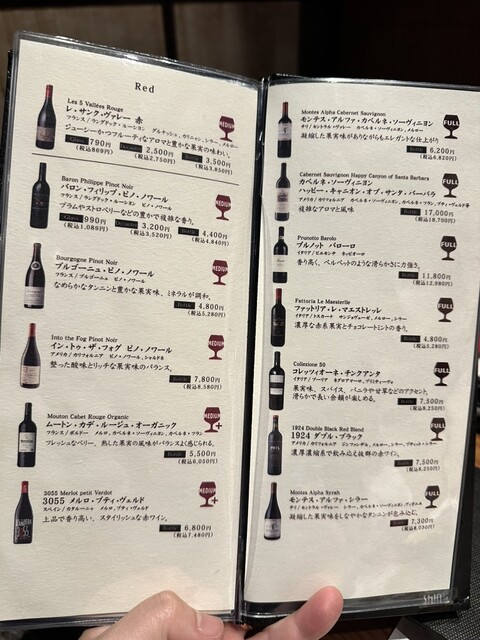 Red
Les 5 Vallées Rouge
レ・サンク・ヴァレー 赤
フランス/ラングドック・ルーション グルナッシュ、カリニャン、シラー、メルロー
ジューシーかつフルーティなアロマと豊かな果実の味わい。
Glass 790円 Decanter 2,500円 Bottle 3,500円
(税込869円) (税込2,750円) (税込3,850円)
MEDIUM
Baron Philippe Pinot Noir
バロン・フィリップ・ピノ・ノワール
フランス/ラングドック・ルーション ピノ・ノワール
プラムやストロベリーなどの豊かで複雑な香り。
Glass 990円 Decanter 3,200円 Bottle 4,400円
(税込1,089円) (税込3,520円) (税込4,840円)
MEDIUM
Bourgogne Pinot Noir
ブルゴーニュ・ピノ・ノワール
フランス/ブルゴーニュ ピノ・ノワール
なめらかなタンニンと豊かな果実味、ミネラルが調和。
Bottle 4,800円
(税込5,280円)
MEDIUM
Into the Fog Pinot Noir
イン・トゥ・ザ・フォグ ピノ・ノワール
アメリカ/カリフォルニア ピノ・ノワール、シャルドネ
整った酸味とリッチな果実味のバランス。
Bottle 7,800円
(税込8,580円)
MEDIUM
Mouton Cadet Rouge Organic
ムートン・カデ・ルージュ・オーガニック
フランス/ボルドー メルロ、カベルネ・ソーヴィニヨン、カベルネ・フラン
フレッシュなベリー、熟した果実の風味がバランスよく感じられる。
Bottle 5,500円
(税込6,050円)
MEDIUM+
3055 Merlot petit Verdot
3055 メルロ・プティ・ヴェルド
スペイン/カタルーニャ メルロ、プティ・ヴェルド
上品で香り高い、スタイリッシュな赤ワイン。
Bottle 6,800円
(税込7,480円)
MEDIUM+
Montes Alpha Cabernet Sauvignon
モンテス・アルファ・カベルネ・ソーヴィニヨン
チリ/セントラル・ヴァレー カベルネ・ソーヴィニヨン、メルロー
凝縮した果実味がありながらもエレガントな仕上がり
Bottle 6,200円
(税込6,820円)
FULL
Cabernet Sauvignon Happy Canyon of Santa Barbara
カベルネ・ソーヴィニヨン
ハッピー・キャニオン・オブ・サンタ・バーバラ
アメリカ/カリフォルニア
複雑なアロマと風味
Bottle 17,000円
(税込18,700円)
FULL
Prunotto Barolo
プルノット バローロ
イタリア/ピエモンテ ネッビオーロ
香り高く、ベルベットのような滑らかさに力強さ。
Bottle 11,800円
(税込12,980円)
FULL
Fattoria Le Maestrelle
ファットリア・レ・マエストレッレ
イタリア/トスカーナ サンジョヴェーゼ、メルロー、シラー
濃厚な赤系果実とチョコレートミントの香り。
Bottle 4,800円
(税込5,280円)
FULL
Collezione 50
コレッツィオーネ・チンクアンタ
イタリア/プーリア ネグロアマーロ、プリミティーヴォ
果実味、スパイス、バニラや甘草などのアクセント。
滑らかで長い余韻が楽しめる。
Bottle 7,500円
(税込8,250円)
FULL
1924 Double Black Red Blend
1924 ダブル・ブラック
アメリカ/カリフォルニア ジンファンデル、メルロー、シラー、プティ・シラー
濃厚濃縮系で飲み込む抜群の赤ワイン。
Bottle 7,500円
(税込8,250円)
FULL
Montes Alpha Syrah
モンテス・アルファ・シラー
凝縮した果実味をしなやかなタンニンが包み込む。
Bottle 7,300円
(税込8,030円)
FULL